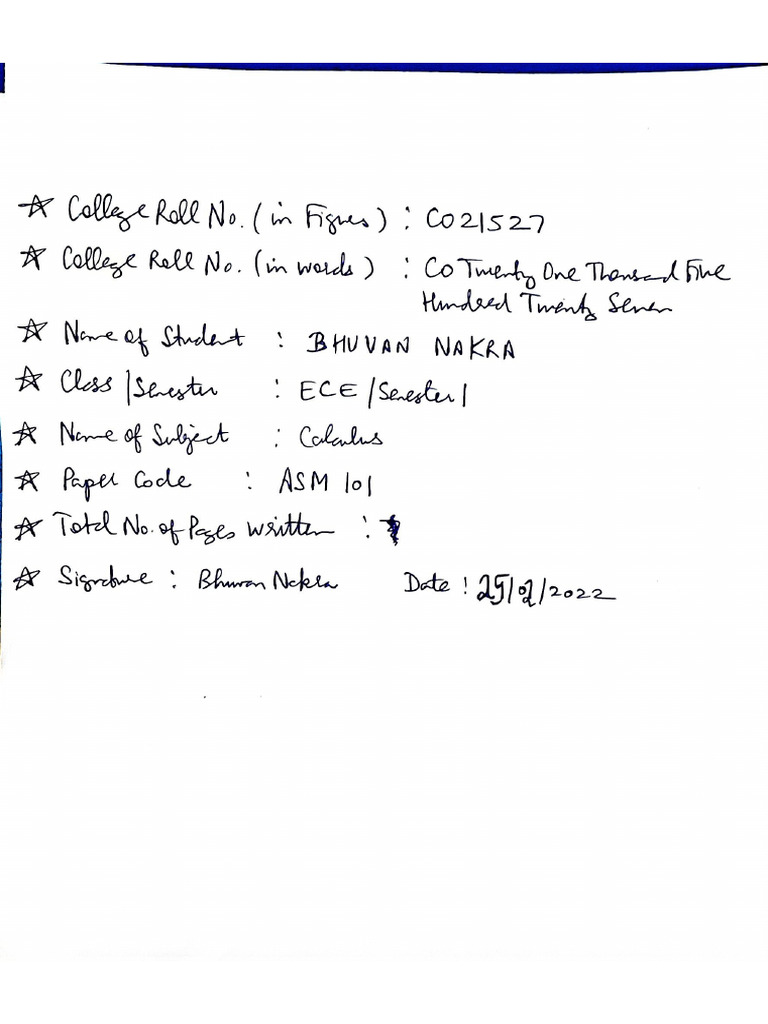 ☆ College Roll No. (in Figures) : CO21527
☆ College Roll No. (in words) : CO Twenty One Thousand Five
Hundred Twenty Seven
☆ Name of Student : BHUVAN NAKRA
☆ Class/Semester : ECE/Semester 1
☆ Name of Subject : Calculus
☆ Paper Code : ASM 101
☆ Total No. of Pages written :
☆ Signature : Bhuvan Nakra Date : 25/02/2022